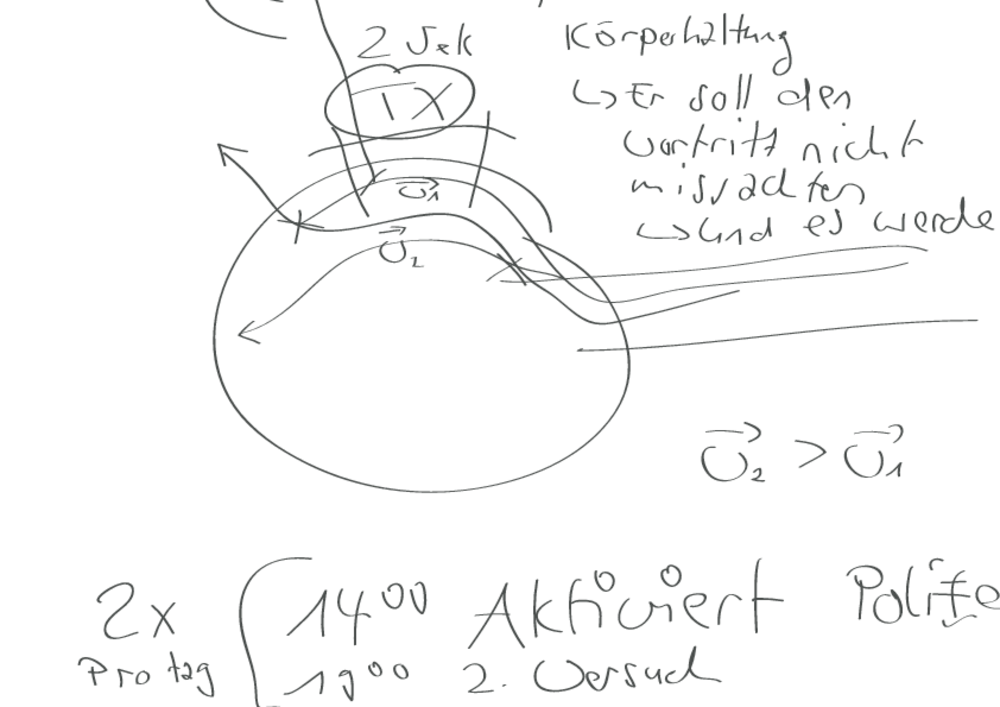 2 Sek
1X
Körperhaltung
↳ Er soll den
Vortritt nicht
missachten
↳ Und es werde
v⃗₁
v⃗₂
v⃗₂ > v⃗₁
2x
Pro tag
14⁰⁰ Aktiviert Polite
19⁰⁰ 2. Versuch